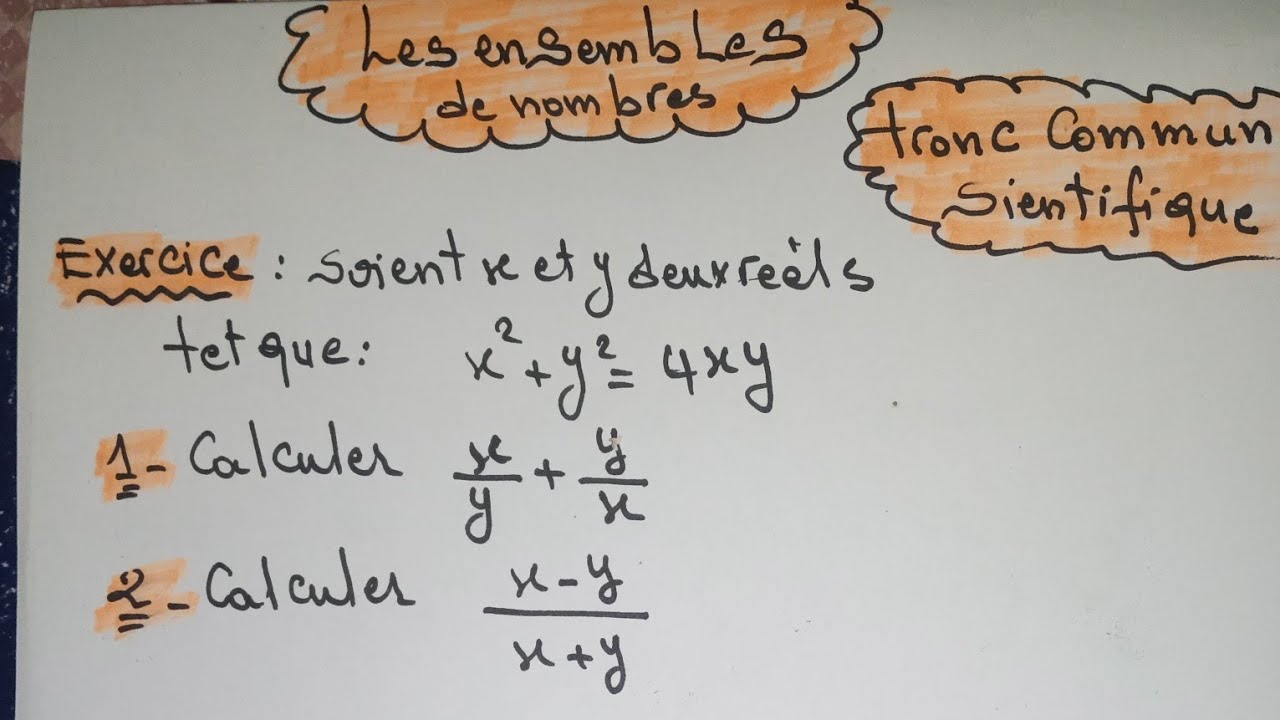 Les ensembles
de nombres
tronc Commun
sientifique
Exercice : soient x et y deux reèls
tet que : x² + y² = 4xy
1 - Calculer x/y + y/x
2 - Calculer (x - y)/(x + y)